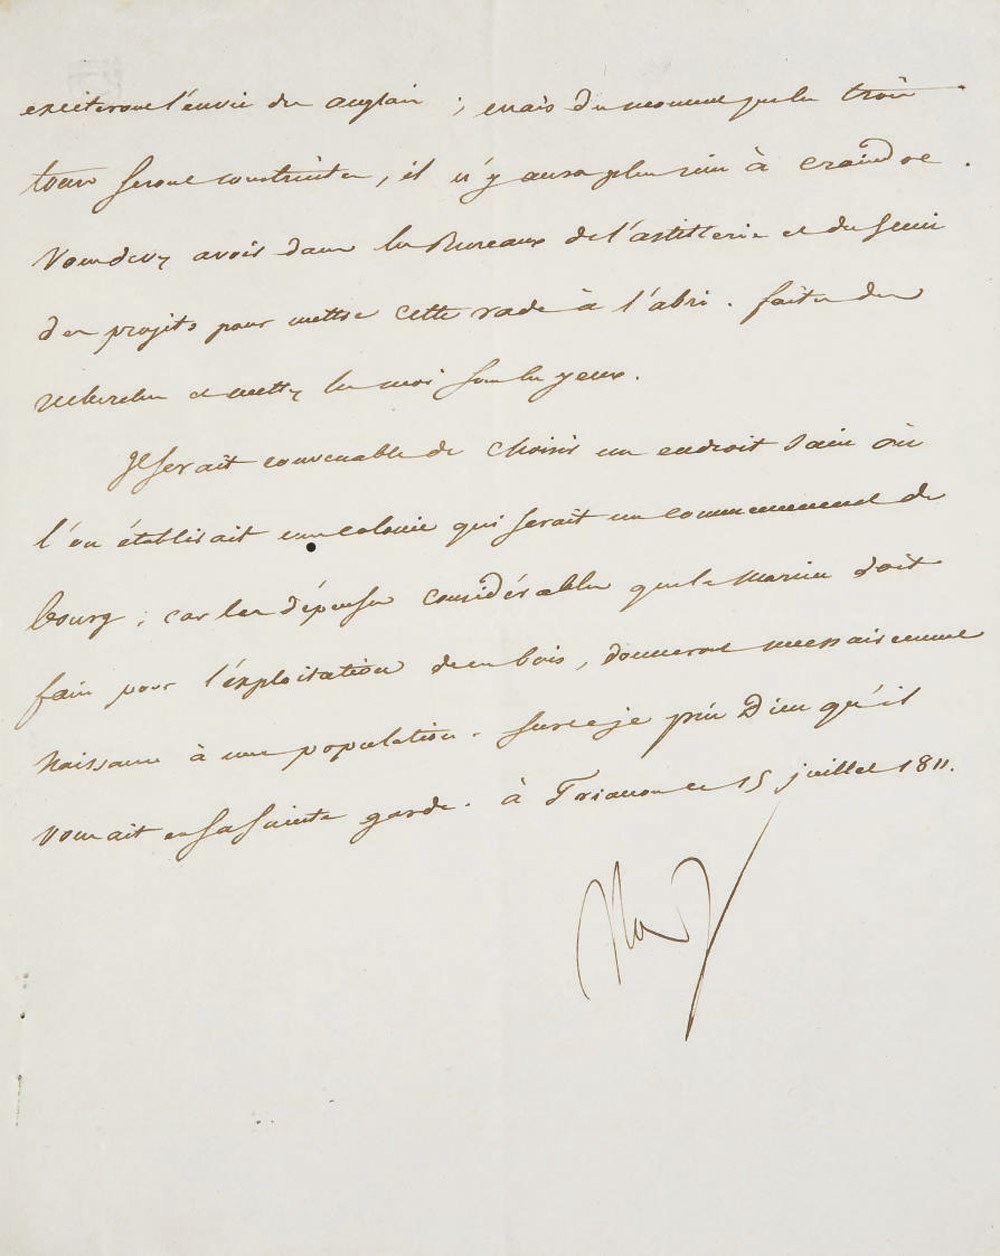 exciteront l'envie des anglais ; mais du moment que les trois
tours seront construites, il n'y aura plus rien à craindre.
Vous devez avoir dans les Bureaux de l'artillerie et du Génie
des projets pour mettre cette rade à l'abri. faites des
recherches et mettez les moi sous les yeux.
Il serait convenable de choisir un endroit sain où
l'on établirait une colonie qui serait un commencement de
bourg ; car les dépenses considérables que la marine doit
faire pour l'exploitation de ces bois, donneront nécessairement
naissance à une population. Sur ce je prie Dieu qu'il
vous ait en sa sainte garde. à Trianon ce 15 juillet 1811.
Nap